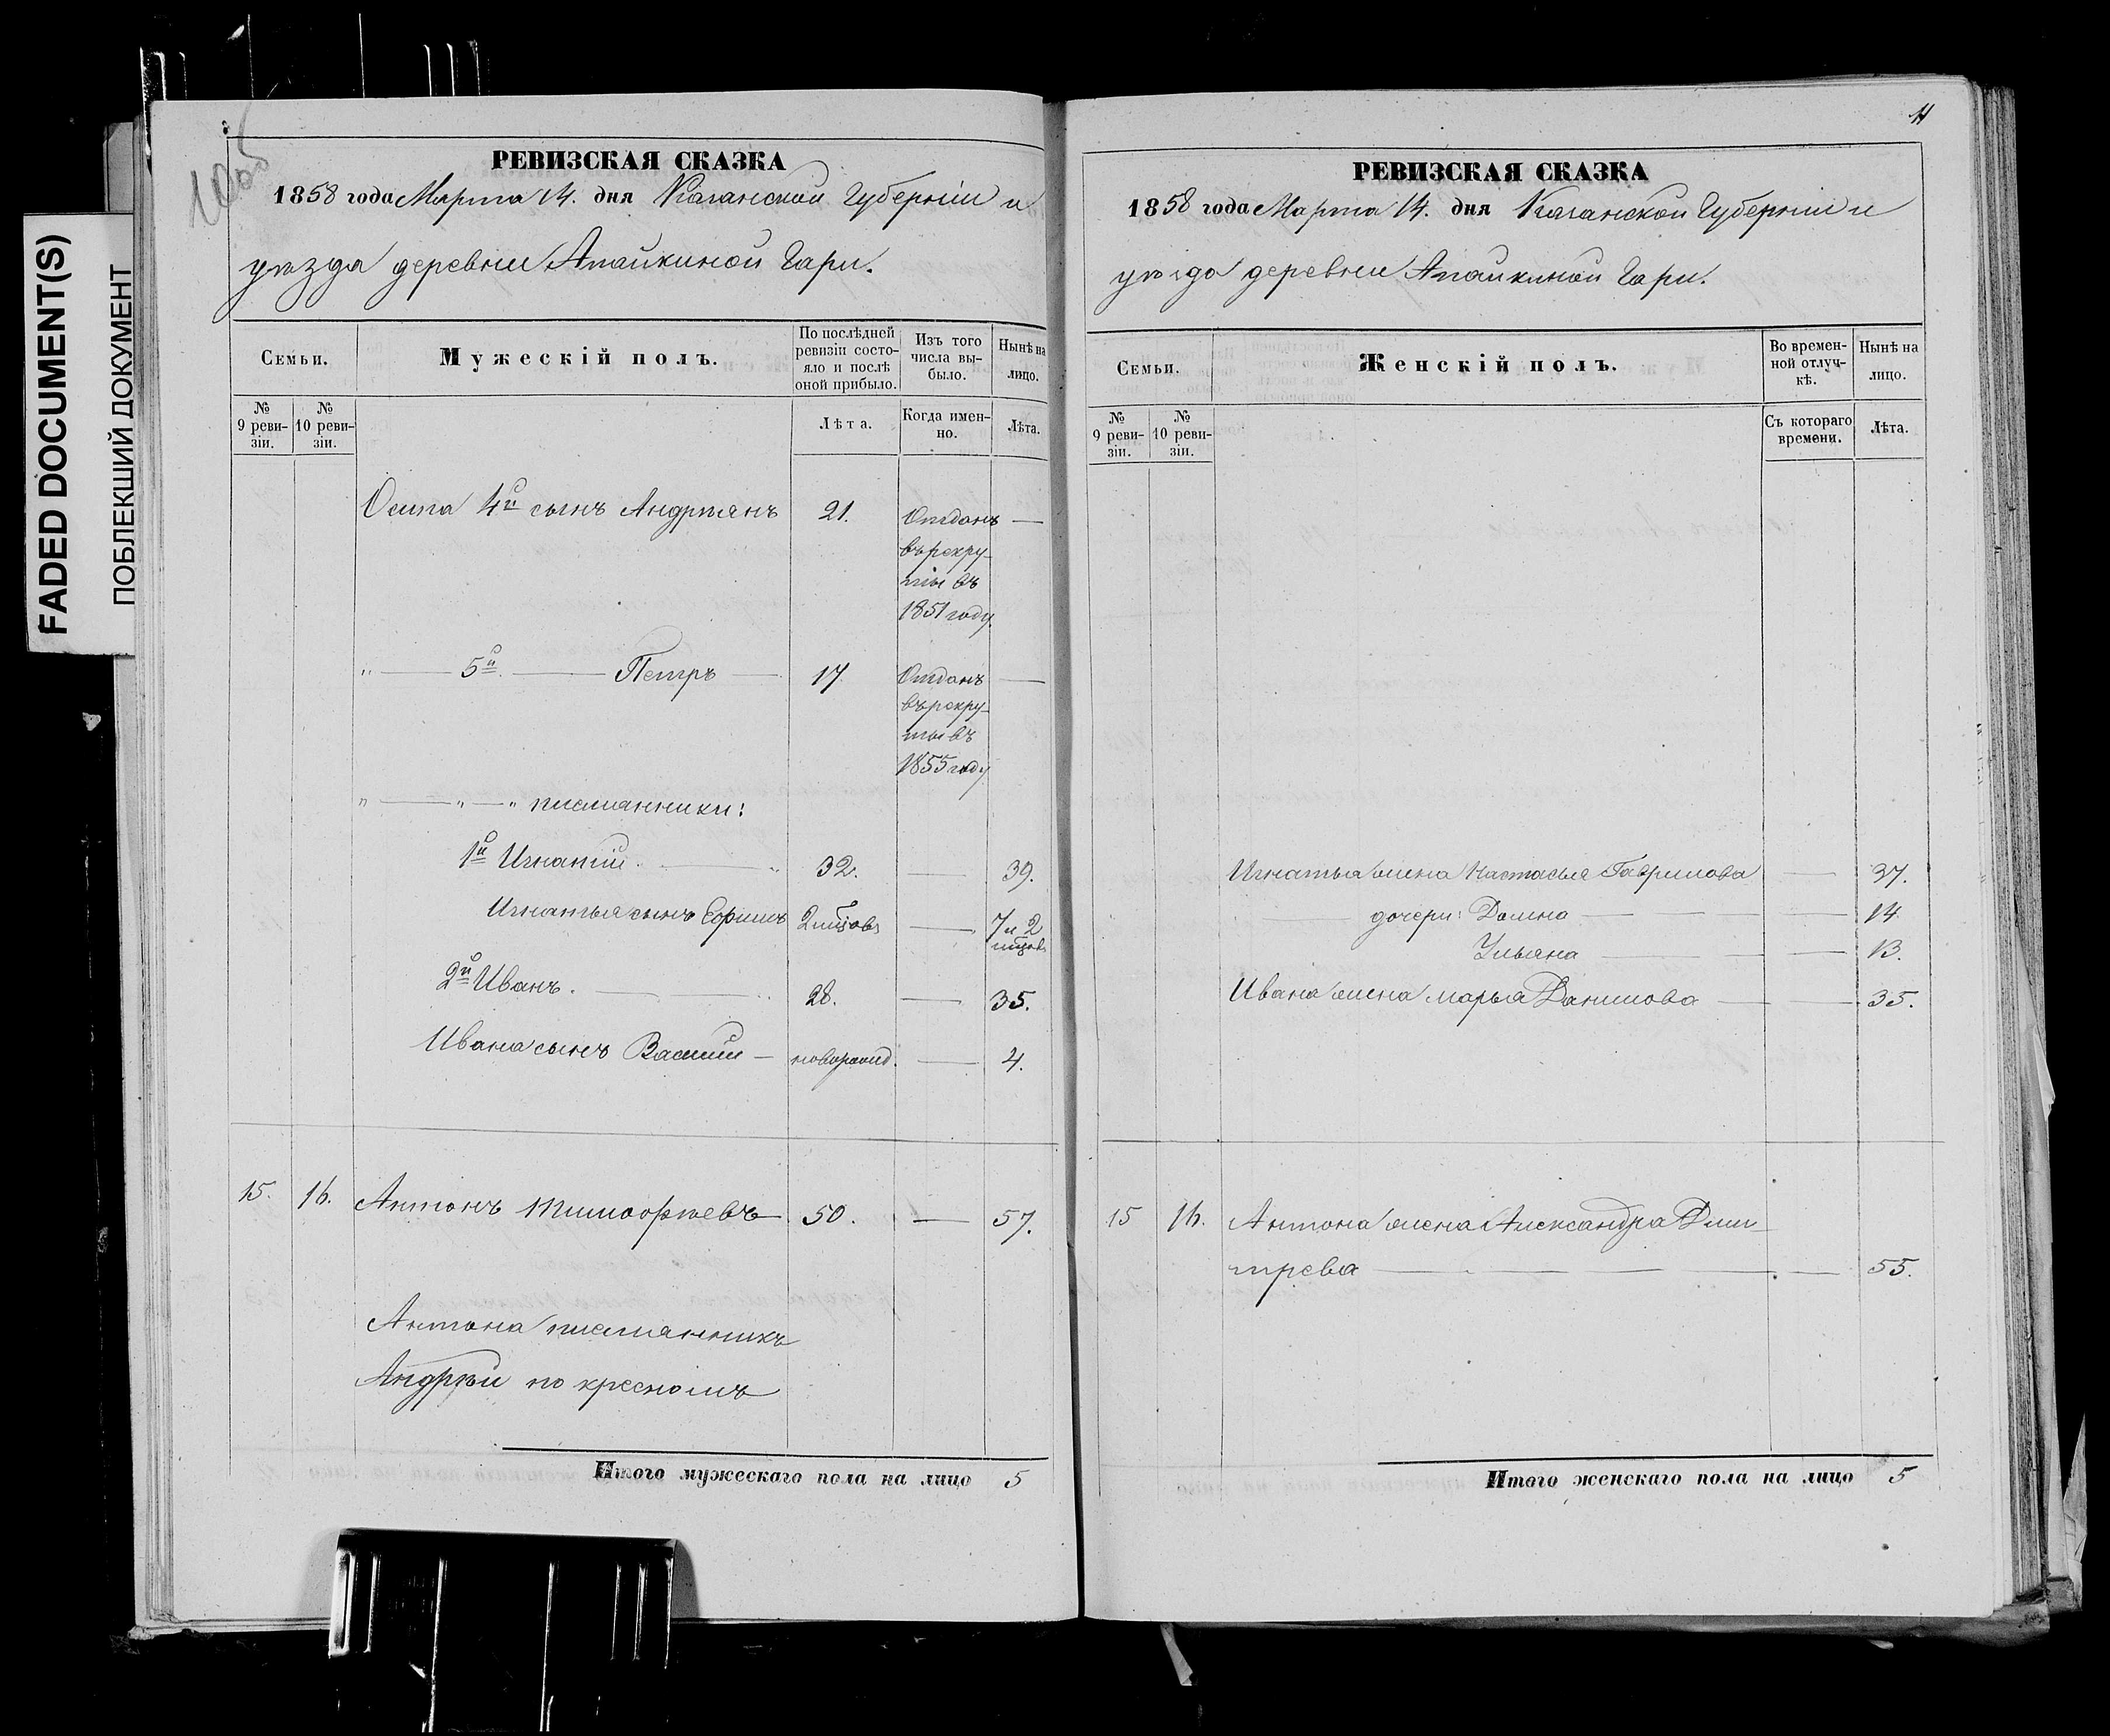 FADED DOCUMENT(S)
ПОБЛЕКШИЙ ДОКУМЕНТ
РЕВИЗСКАЯ СКАЗКА
1858 года Марта 14. дня Казанской Губерніи и
уѣзда деревни Апайкиной Гари.
Семьи.
Мужескій полъ.
По послѣдней ревизіи состояло и послѣ оной прибыло.
Изъ того числа выбыло.
Нынѣ на лицо.
№ 9 ревизіи.
№ 10 ревизіи.
Лѣта.
Когда именно.
Лѣта.
Осипа 4й сынъ Андреянъ 21. Отданъ —
въ рекру-
ты въ
1851 году.
" — 5й. — Петръ — 17 Отданъ —
въ рекру-
ты въ
1855 году
" — " — " племянники:
1й Игнатій. — 32. — 39.
Игнатья сынъ Ефимъ 2 мѣсцовъ — 7 и 2
мѣсцовъ
2й Иванъ. — 28. — 35.
Ивана сынъ Василій — новорожд. — 4.
15. 16. Антонъ Тимофѣевъ — 50. — 57.
Антона племянникъ
Андрѣй по кресномъ
Итого мужескаго пола на лицо 5
4
РЕВИЗСКАЯ СКАЗКА
1858 года Марта 14. дня Казанской Губерніи и
уѣзда деревни Апайкиной Гари.
Семьи.
Женскій полъ.
Во временной отлучкѣ.
Нынѣ на лицо.
№ 9 ревизіи.
№ 10 ревизіи.
Съ котораго времени.
Лѣта.
Игнатья жена Настасья Гаврилова — 37.
— дочери: Домна — 14
Ульяна — 13.
Ивана жена Марья Данилова — 35.
15 16. Антона жена Александра Дми-
трева — 55.
Итого женскаго пола на лицо 5